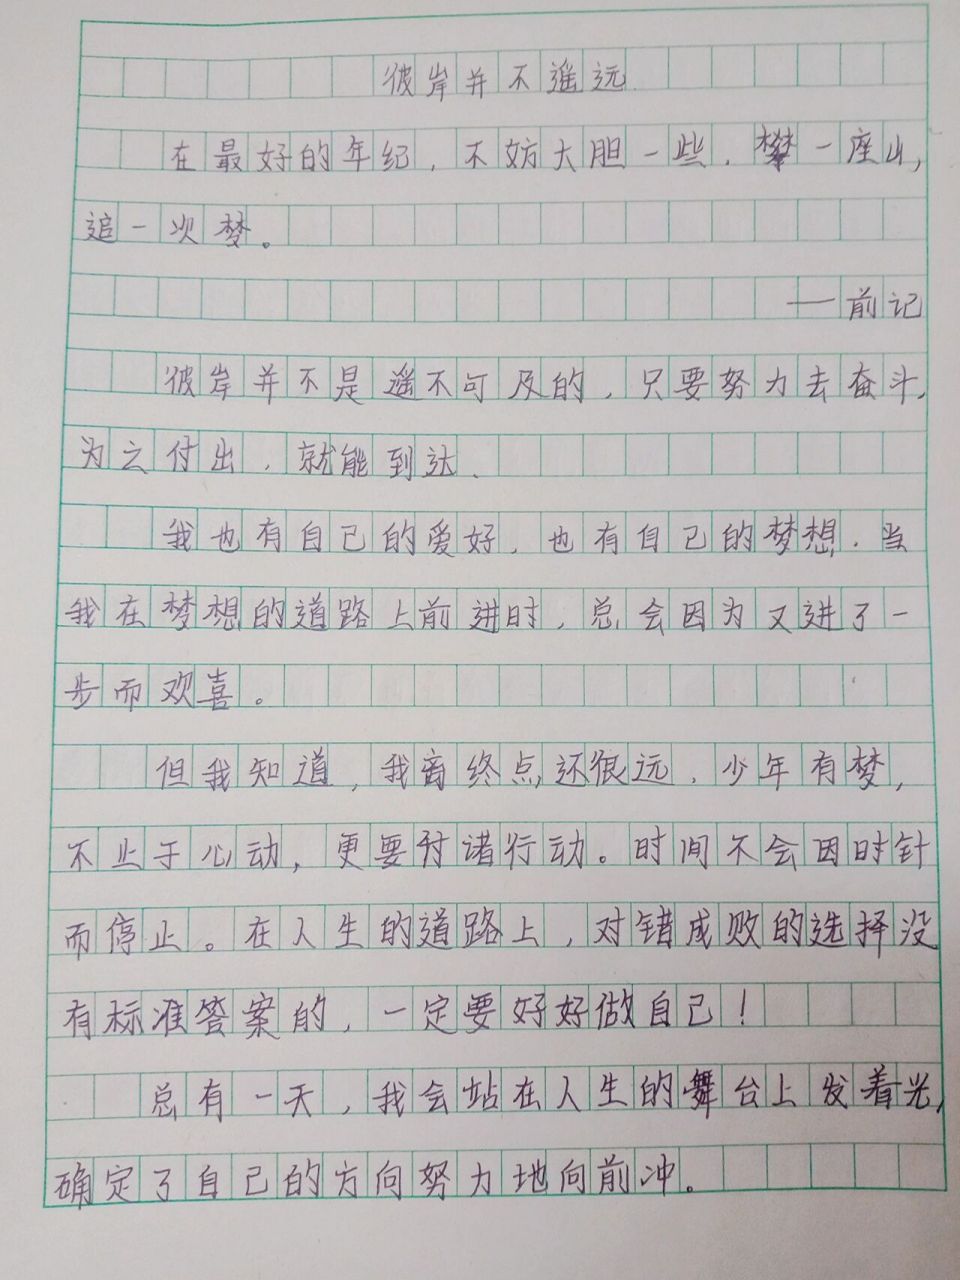 彼岸并不遥远
在最好的年纪，不妨大胆一些，攀一座山，
追一次梦。
——前记
彼岸并不是遥不可及的，只要努力去奋斗，
为之付出，就能到达.
我也有自己的爱好，也有自己的梦想.当
我在梦想的道路上前进时，总会因为又进了一
步而欢喜。
但我知道，我离终点还很远.少年有梦，
不止于心动，更要付诸行动。时间不会因时针
而停止。在人生的道路上，对错成败的选择没
有标准答案的，一定要好好做自己！
总有一天，我会站在人生的舞台上发着光，
确定了自己的方向努力地向前冲。